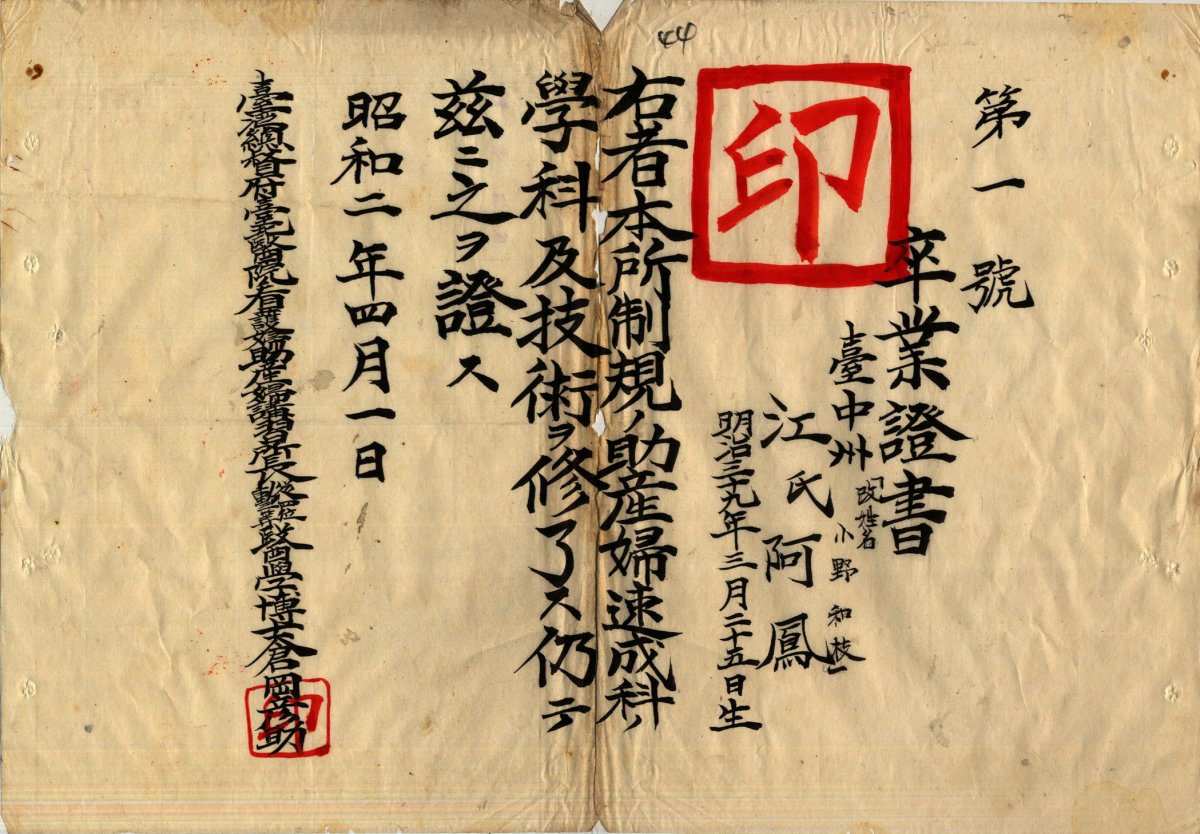 44
第一號
卒業證書
臺中州
「改姓名 小野 和枝」
江氏阿鳳
明治三十九年三月二十五日生
印
右者本所制規ノ助産婦速成科ノ
學科及技術ヲ修了ス仍テ
茲ニ之ヲ證ス
昭和二年四月一日
臺灣總督府臺北醫院看護婦助産婦講習所長醫學博士倉岡彦助
印